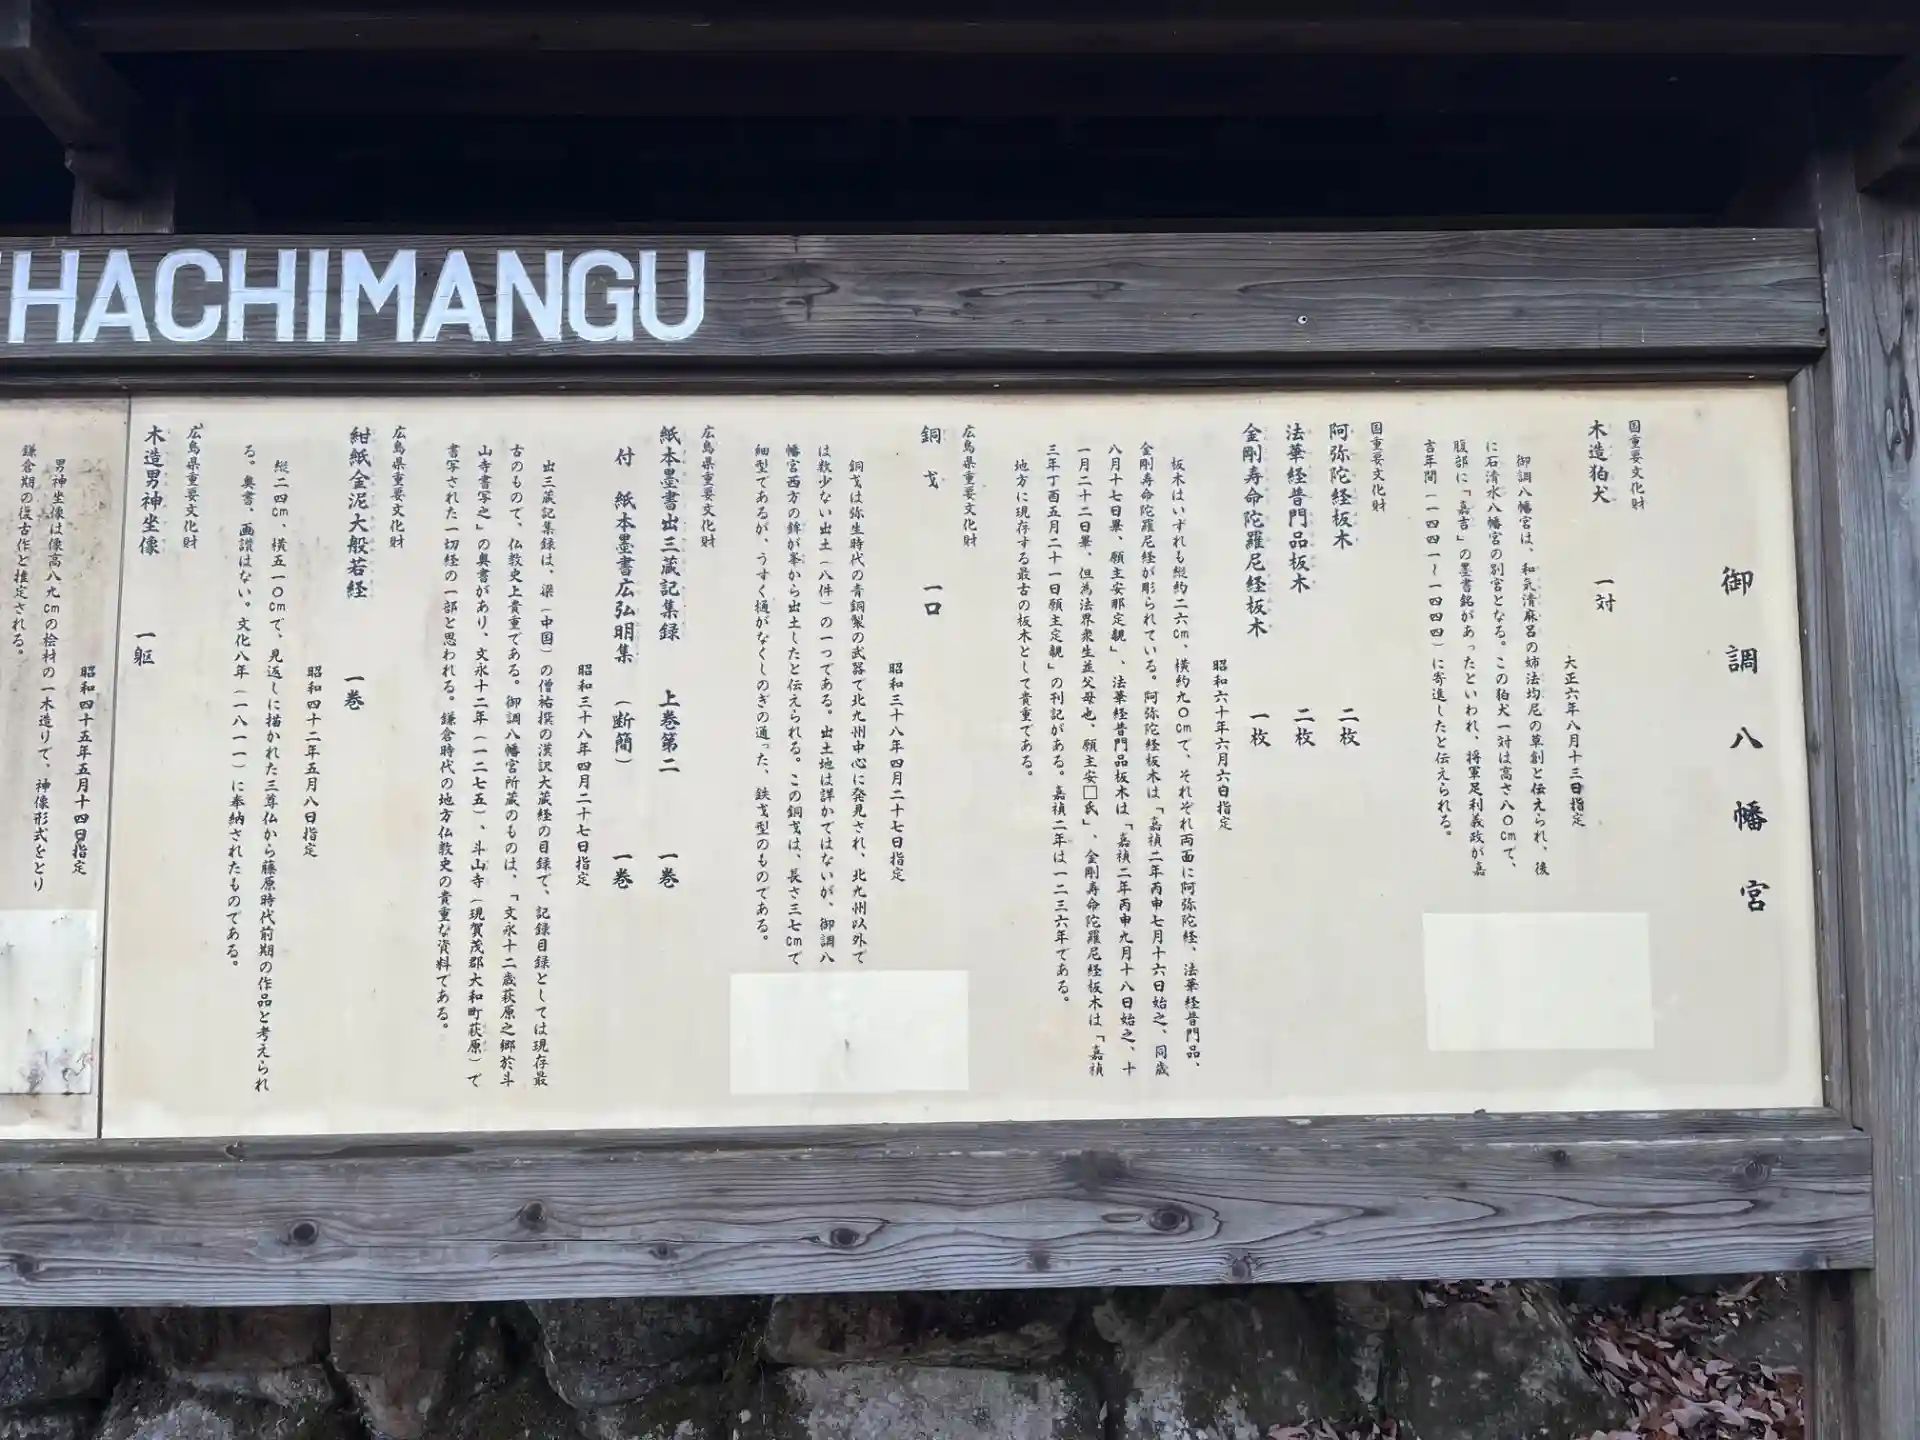 HACHIMANGU
御調八幡宮
国重要文化財
木造狛犬 一対
大正六年八月十三日指定
御調八幡宮は、和気清麻呂の姉法均尼の草創と伝えられ、後
に石清水八幡宮の別宮となる。この狛犬一対は高さ八〇cmで、
腹部に「嘉吉」の墨書銘があったといわれ、将軍足利義政が嘉
吉年間(一四四一~一四四四)に寄進したと伝えられる。
国重要文化財
阿弥陀経板木 二枚
法華経普門品板木 二枚
金剛寿命陀羅尼経板木 一枚
昭和六十年六月六日指定
板木はいずれも縦約二六cm、横約九〇cmで、それぞれ両面に阿弥陀経、法華経普門品、
金剛寿命陀羅尼経が彫られている。阿弥陀経板木は「嘉禎二年丙申七月十六日始之、同歳
八月十七日畢、願主安那定親」、法華経普門品板木は「嘉禎二年丙申九月十八日始之、十
一月二十二日畢、但為法界衆生並父母也、願主安□氏」、金剛寿命陀羅尼経板木は「嘉禎
三年丁酉五月二十一日願主定親」の刊記がある。嘉禎二年は一二三六年である。
地方に現存する最古の板木として貴重である。
広島県重要文化財
銅戈 一口
昭和三十八年四月二十七日指定
銅戈は弥生時代の青銅製の武器で北九州中心に発見され、北九州以外で
は数少ない出土(八件)の一つである。出土地は詳かではないが、御調八
幡宮西方の鉾が峯から出土したと伝えられる。この銅戈は、長さ三七cmで
細型であるが、うすく樋がなくしのぎの通った、鉄戈型のものである。
広島県重要文化財
紙本墨書出三蔵記集録 上巻第二 一巻
付 紙本墨書広弘明集(断簡) 一巻
昭和三十八年四月二十七日指定
出三蔵記集録は、梁(中国)の僧祐撰の漢訳大蔵経の目録で、記録目録としては現存最
古のもので、仏教史上貴重である。御調八幡宮所蔵のものは、「文永十二歳萩原之郷於斗
山寺書写之」の奥書があり、文永十二年(一二七五)、斗山寺(現賀茂郡大和町萩原)で
書写された一切経の一部と思われる。鎌倉時代の地方仏教史の貴重な資料である。
広島県重要文化財
紺紙金泥大般若経 一巻
昭和四十二年五月八日指定
縦二四cm、横五一〇cmで、見返しに描かれた三尊仏から藤原時代前期の作品と考えられ
る。奥書、画讃はない。文化八年(一八一一)に奉納されたものである。
広島県重要文化財
木造男神坐像 一躯
昭和四十五年五月十四日指定
男神坐像は像高八九cmの桧材の一木造りで、神像形式をとり
鎌倉期の復古作と推定される。